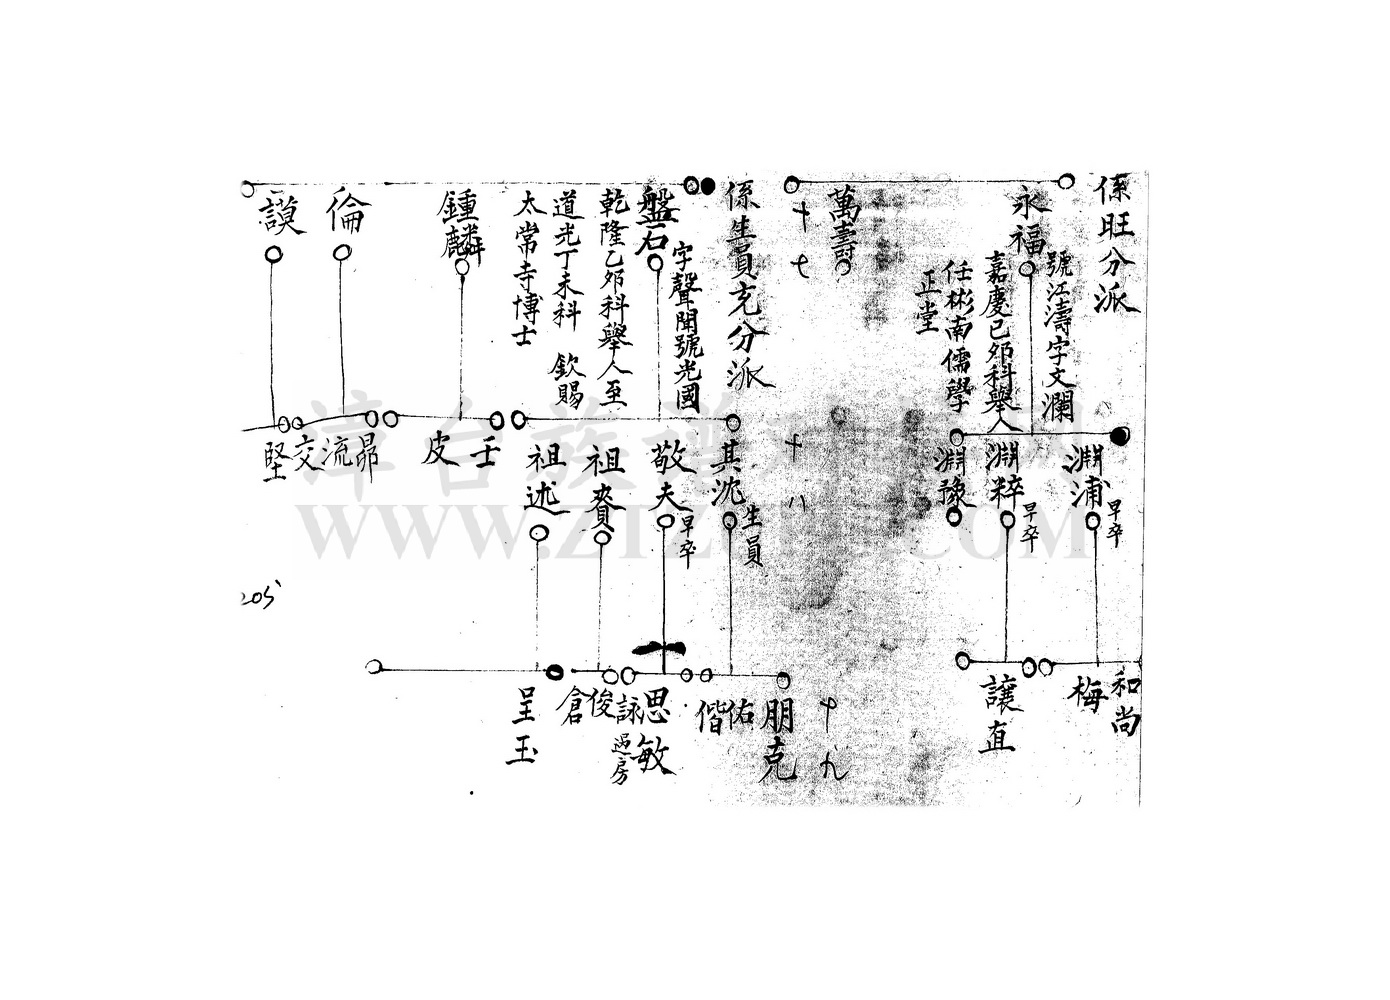 係旺分派
永福
號江濤字文瀾
嘉慶己夘科舉人
任彬南儒學
正堂
萬壽
十七
係生員克分派
盤石
字聲聞號光國
乾隆乙夘科舉人至
道光丁未科 欽賜
太常寺博士
鍾麟
倫
謨
淵浦
早卒
淵粹
早卒
淵豫
十八
其沈
生員
敬夫
早卒
祖賚
祖述
壬
皮
昴
流
交
堅
和尚
梅
直
讓
十九
朋克
佑
偕
思敏
詠
過房
俊
倉
呈玉
205
漳台族譜
WWW.ZTZUPU.COM